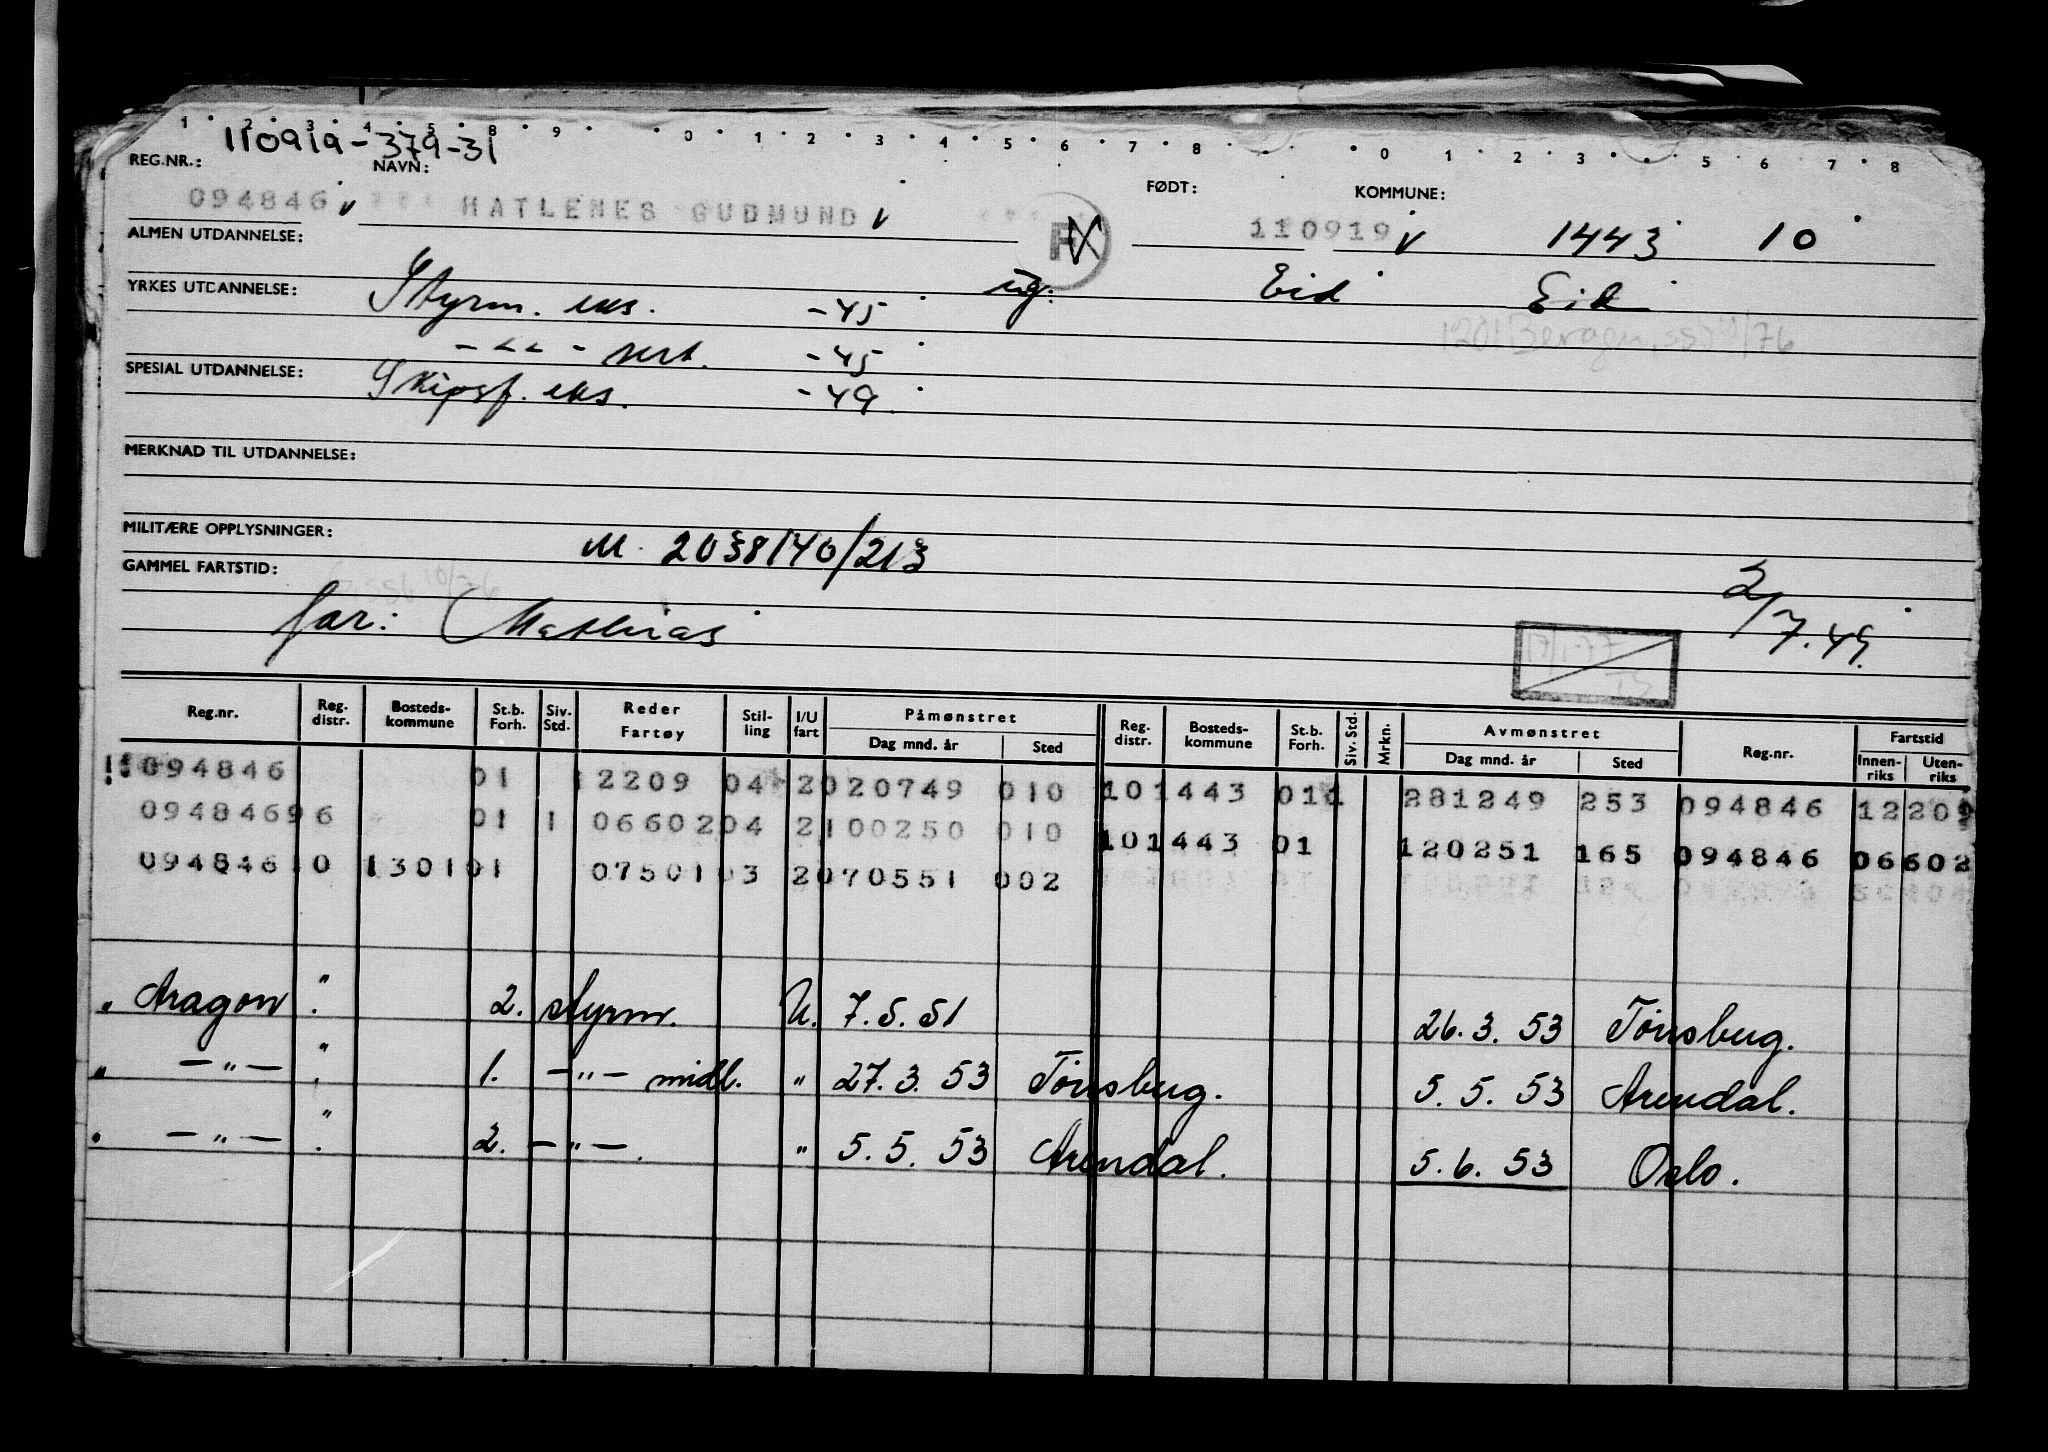 1 2 3 4 5 8 9 0 1 2 3 4 5 6 7 8 0 1 2 3 5 6 7 8
110919-379-31
REG.NR.: NAVN: FØDT: KOMMUNE:
094846 HATLENES GUDMUND 110919 1443 10
ALMEN UTDANNELSE: ug. Eid Eid
YRKES UTDANNELSE: Styrm. eks. -45
-"- sert. -45
SPESIAL UTDANNELSE: Skipsf. eks. -49
MERKNAD TIL UTDANNELSE:
MILITÆRE OPPLYSNINGER: M. 2038/40/213
GAMMEL FARTSTID: 2/7.49.
far: Mathias
Reg.nr. Reg. distr. Bosteds- kommune St.b. Forh. Siv. Std. Reder Fartøy Stil- ling I/U fart Påmønstret Dag mnd. år Sted Reg. distr. Bosteds- kommune St.b. Forh. Siv. Std. Mrkn. Avmønstret Dag mnd. år Sted Reg.nr. Fartstid Innen- riks Uten- riks
094846 01 12209 04 2020749 010 101443 01 281249 253 094846 12209
094846 96 01 1 06602 04 2100250 010 101443 01 120251 165 094846 06602
094846 10 1301 01 07501 03 2070551 002
" Aragon " 2. styrm. U. 7.5.51 26.3.53 Tönsberg.
" -"- " 1. -"- midl. " 27.3.53 Tönsberg. 5.5.53 Arendal.
" -"- " 2. -"-. " 5.5.53 Arendal. 5.6.53 Oslo.